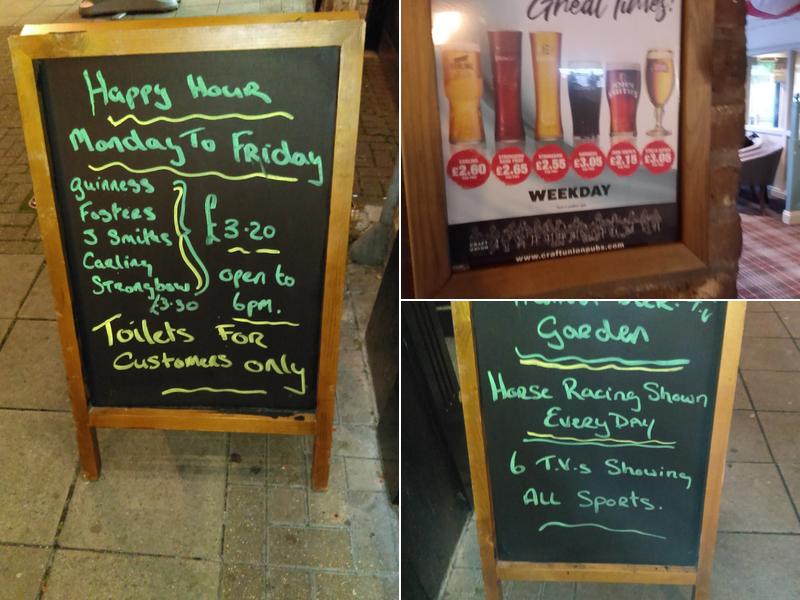 Happy Hour
Monday To Friday
Guinness
Fosters
J Smiths
Carling
Strongbow
£3.30
£3.20
open to
6pm.
Toilets For
Customers only
Great Times!
£2.60
£2.65
£2.55
£3.05
£2.15
£3.05
WEEKDAY
CRAFT
UNION
www.craftunionpubs.com
T.V
Garden
Horse Racing Shown
EveryDAY
6 T.V.s Showing
ALL Sports.